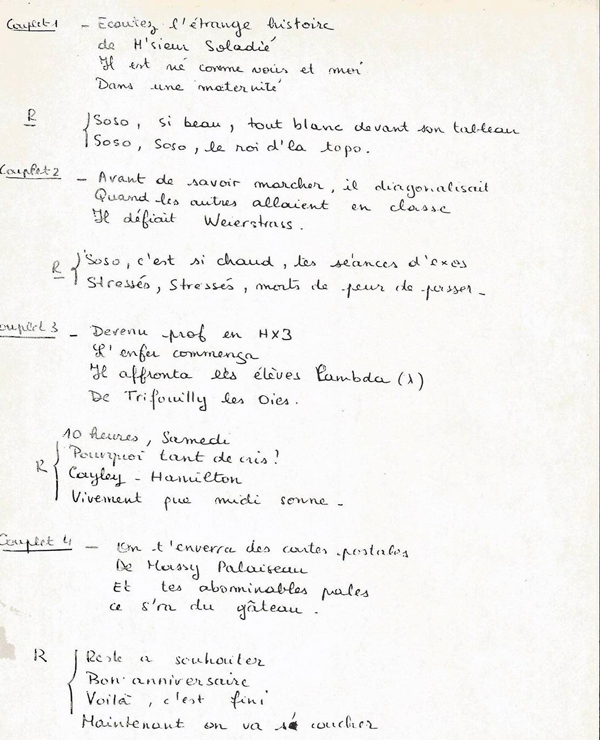 Couplet 1 - Ecoutez l'étrange histoire
de M'sieur Soladié
Il est né comme vous et moi
Dans une maternité
R Soso, si beau, tout blanc devant son tableau
Soso, Soso, le roi d'la topo.
Couplet 2 - Avant de savoir marcher, il diagonalisait
Quand les autres allaient en classe
Il défiait Weierstrass.
R Soso, c'est si chaud, tes séances d'exos
Stressés, Stressés, morts de peur de passer -
ouplet 3 - Devenu prof en HX3
L'enfer commença
Il affronta les élèves Lambda (λ)
De Trifouilly les Oies.
R 10 heures, Samedi
Pourquoi tant de cris?
Cayley - Hamilton
Vivement que midi sonne -
Couplet 4 - On t'enverra des cartes postales
De Massy Palaiseau
Et tes abominables pales
ce s'ra du gâteau.
R Reste a souhaiter
Bon anniversaire
Voilà, c'est fini
Maintenant on va se coucher